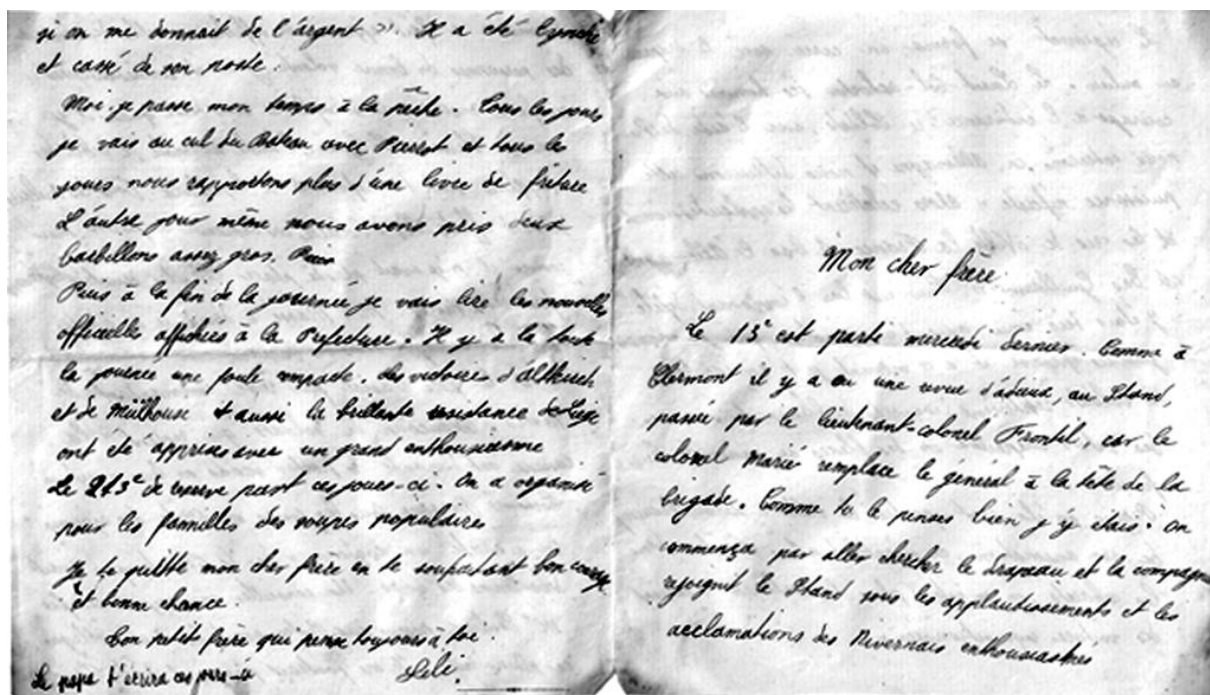 si on me donnait de l'argent ». Il a été lynché
et cassé de son poste.
Moi je passe mon temps à la pêche. Tous les jours
je vais au cul du Bateau avec Pierrot et tous les
jours nous rapportons plus d'une livre de friture
L'autre jour même nous avons pris deux
barbillons assez gros. Puis
Puis à la fin de la journée je vais lire les nouvelles
officielles affichées à la Prefecture. Il y a la toute
la journée une foule compacte. Les victoires d'Altkirch
et de Mülhouse et aussi la brillante resistance de Liège
ont été apprises avec un grand enthousiasme
Le 213e de reserve part ces jours-ci. On a organisé
pour les familles des soupes populaires
Je te quitte mon cher frère en te souhaitant bon courage
et bonne chance.
Ton petit frère qui pense toujours à toi.
Lili.
Le papa t'écrira ces jours-ci
Mon cher frère
Le 13e est parti mercredi dernier. Comme à
Clermont il y a eu une revue d'adieux, au Stand,
passée par le lieutenant-colonel Frontil, car le
colonel Marié remplace le général à la tête de la
brigade. Comme tu le penses bien j'y étais. On
commença par aller chercher le drapeau et la compagnie
rejoignit le Stand sous les applaudissements et les
acclamations des Nivernais enthousiasmés